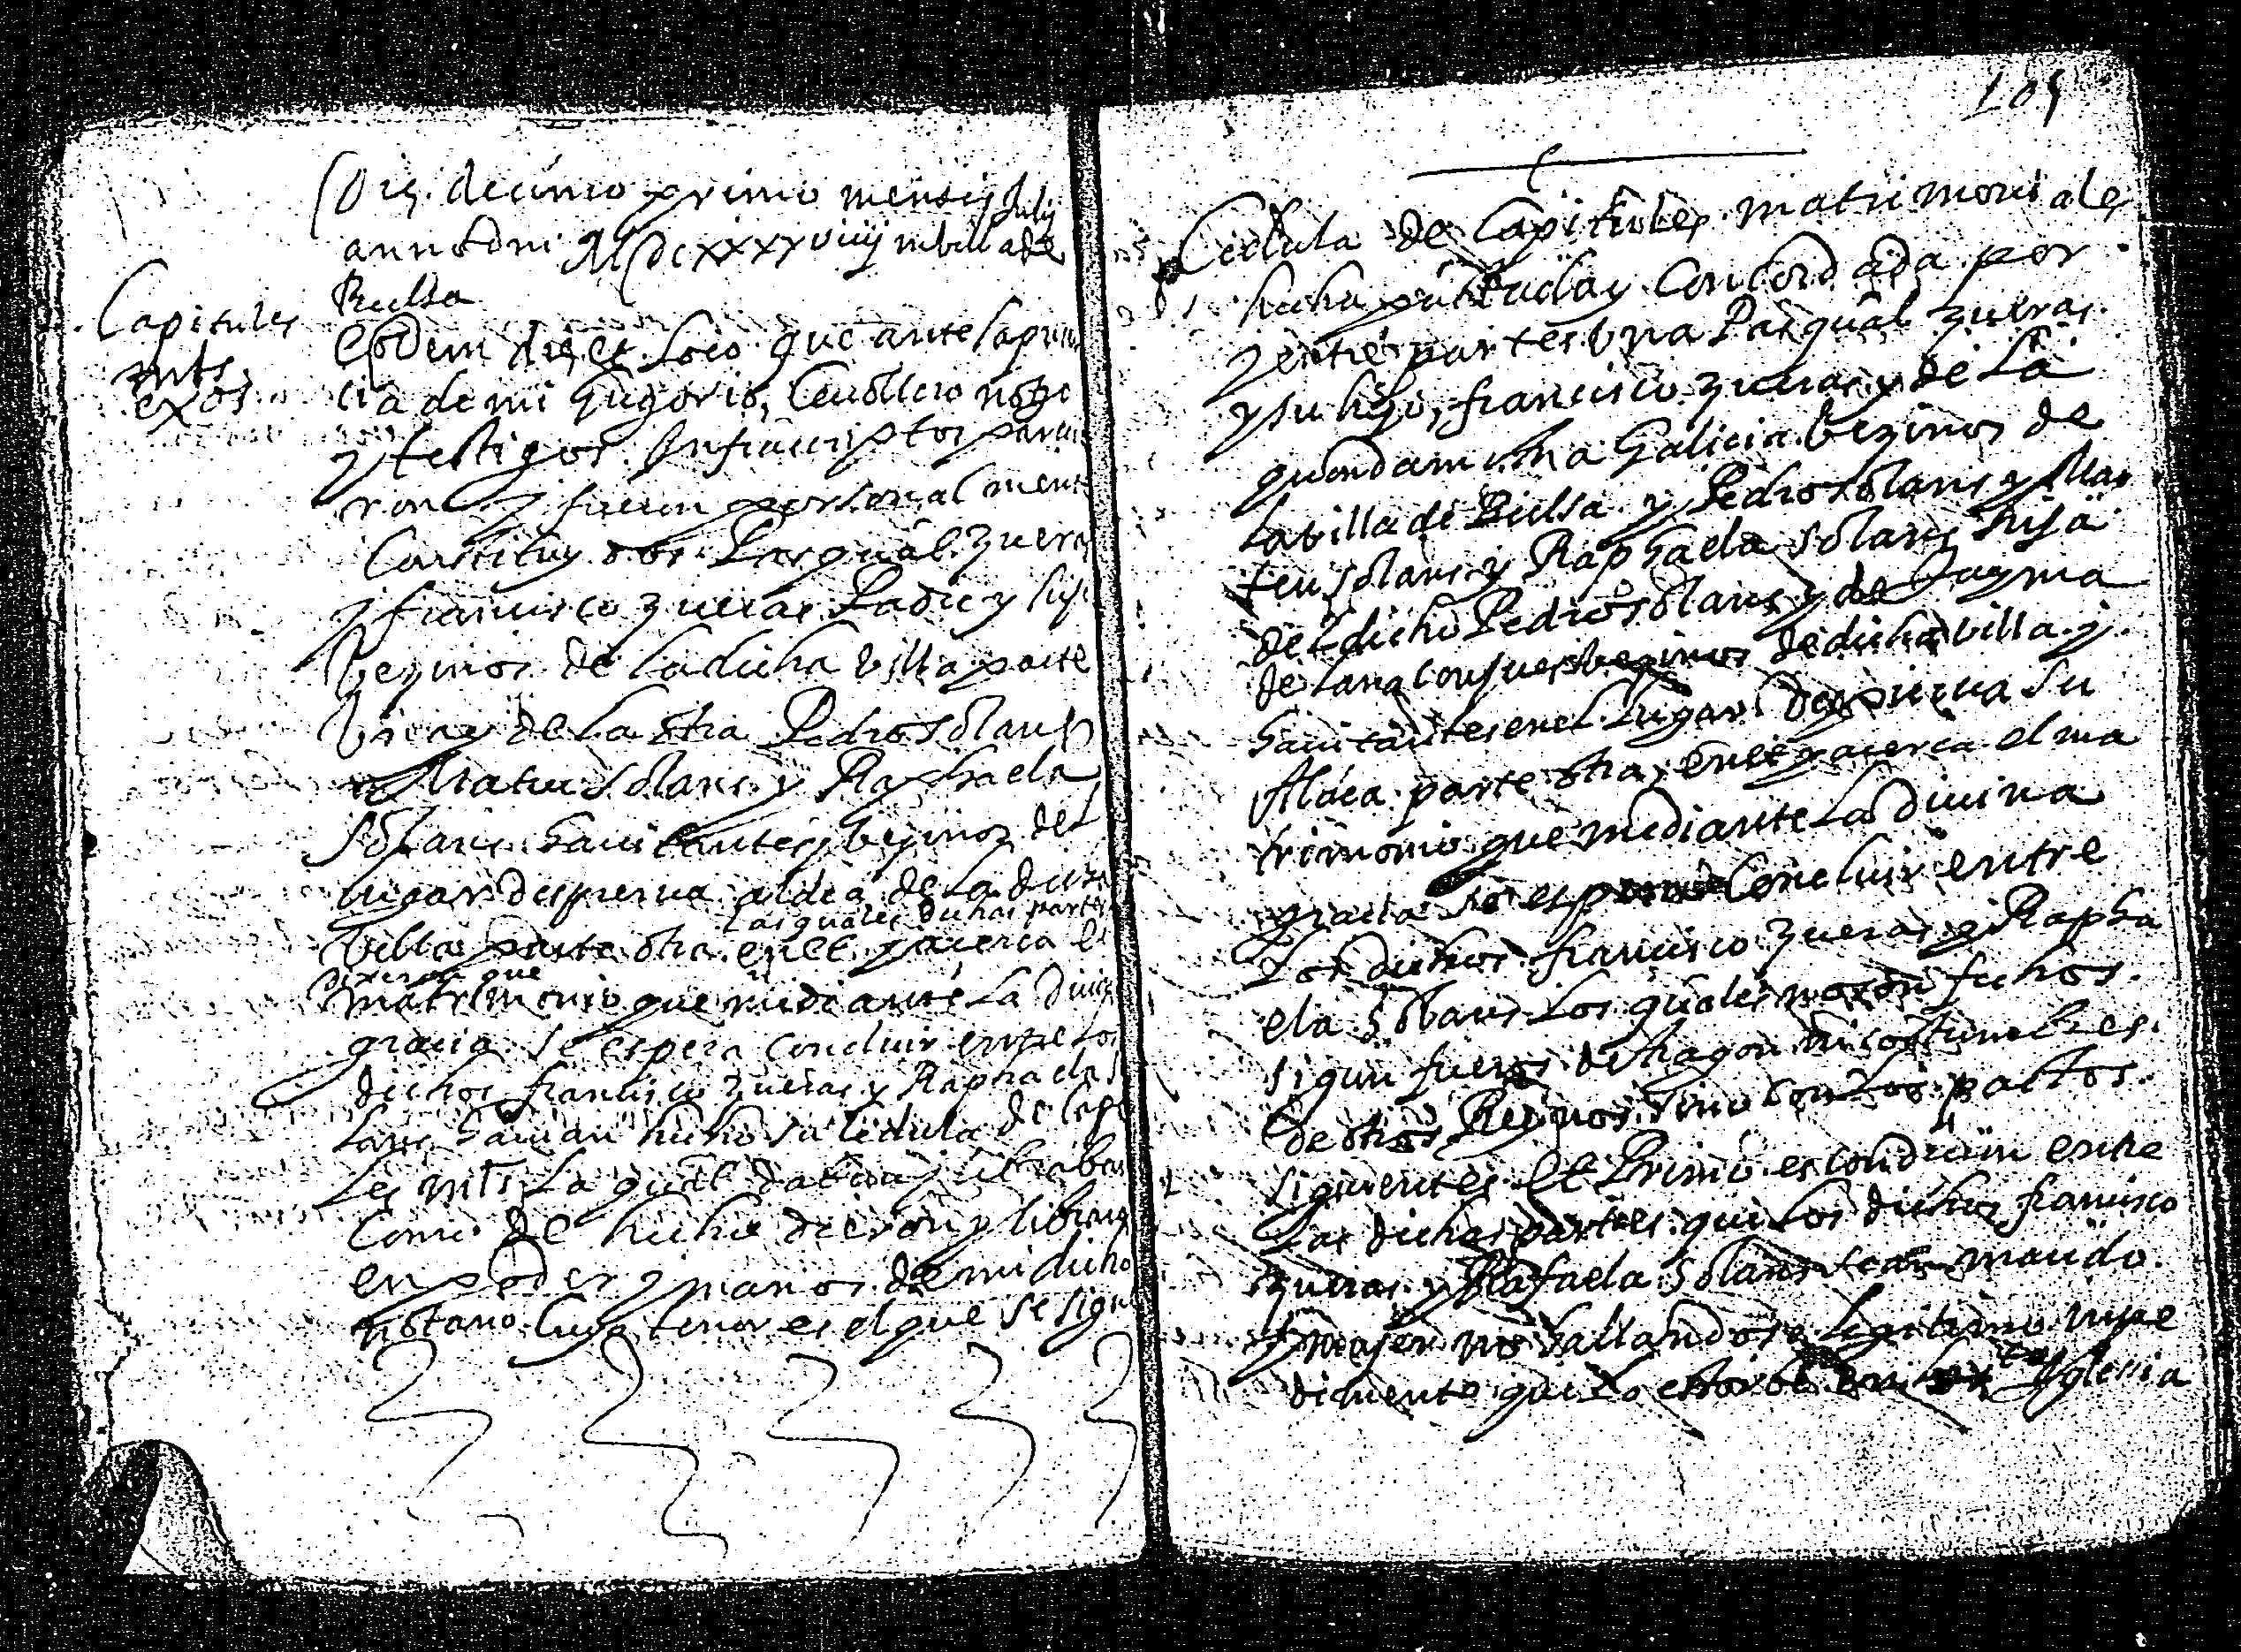 Die decimo primo mensis July
anno dni MDCxxxxviiij in villa de
Bielsa
Capitules
mts
exos.
Eodem die et loco que ante la presen
cia de mi Grigorio, Cavallero noto
y testigos infrascriptos parecie
ron y fueron personalmente
Constituydos Pasqual Zueras
y francisco Zueras Padre y hijo
Vezinos de la dicha villa parte
Una y de la otra Pedro Solans
Mateu Solans y Raphaela
Solans havitantes y vezinos del
lugar despierva aldea de la dicha
las quales dichas partes
villa parte otra en et y acerca el
dixeron que
matrimonio que mediante la divina
gracia se espera concluir entre los
dichos francisco Zueras y Raphaela So
lans havian hecho su cedula de Capitu
les mts la qual daban y libraban
como de hecho dieron y libraron
en poder y manos de mi dicho
notario cuyo tenor es el que se sigue
105
Cedula de Capitules matrimoniales
hecha pactada y concordada por
y entre partes una Pasqual Zueras
y su hijo, francisco Zueras y de la
quondam Galicia vezinos de
la villa de Bielsa y Pedro Solans y Ma
teu Solans y Raphaela Solans hija
del dicho Pedro Solans y de Jayma
de Lana conjuges vezinos de dicha villa y
havitantes en el lugar despierva su
Aldea parte otra, en et y acerca el ma
trimonio que mediante la divina
gracia se espera concluir entre
los dichos francisco Zueras y Rapha
ela Solans los quales no son fechos
sigun fueros de Aragon ni costumbres
de otros Reynos sino con los pactos
siguientes Et Primo es condicion entre
las dichas partes que los dichos francisco
Zueras y Rafaela Solans sean marido
y mujer no hallandose legitimo inpe
dimento que lo estorbe en sta Yglesia